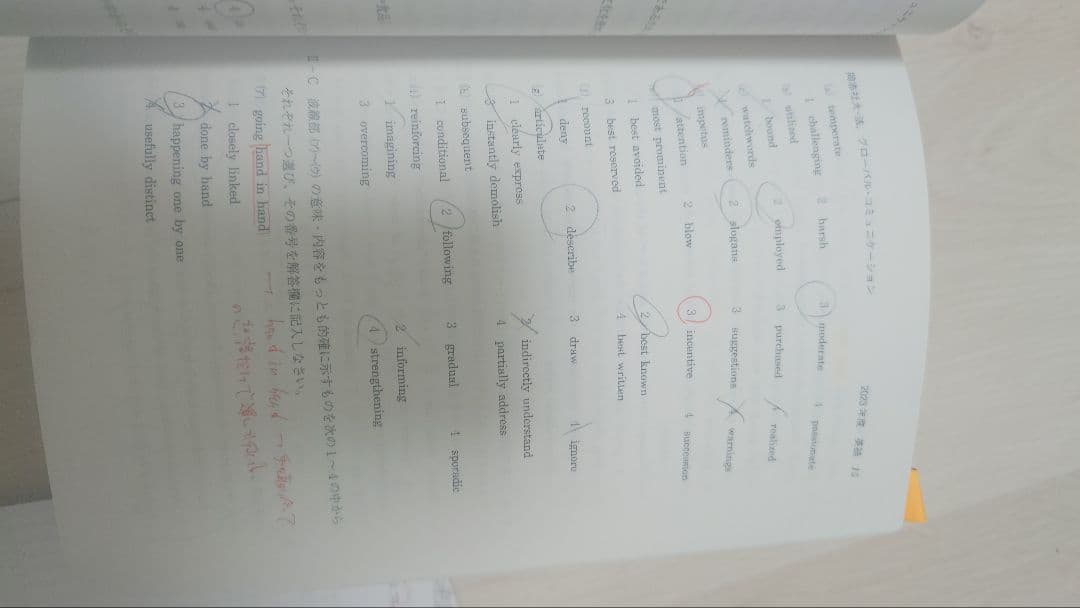 同志社大-法，グローバル・コミュニケーション 2023年度 英語 15
(a) temperate
1 challenging 2 harsh 3 moderate 4 passionate
(b) utilized
1 bound 2 employed 3 purchased 4 realized
(c) watchwords
1 reminders 2 slogans 3 suggestions 4 warnings
impetus
1 attention 2 blow 3 incentive 4 succession
most prominent
1 best avoided 2 best known
3 best reserved 4 best written
(f) recount
1 deny 2 describe 3 draw 4 ignore
(g) articulate
1 clearly express 2 indirectly understand
3 instantly demolish 4 partially address
(h) subsequent
1 conditional 2 following 3 gradual 4 sporadic
(i) reinforcing
1 imagining 2 informing
3 overcoming 4 strengthening
II－C 波線部 (ア)～(ウ) の意味・内容をもっとも的確に示すものを次の1～4の中から
それぞれ一つ選び，その番号を解答欄に記入しなさい。
(ア) going hand in hand → hand in hand →
1 closely linked
2 done by hand
3 happening one by one
4 usefully distinct